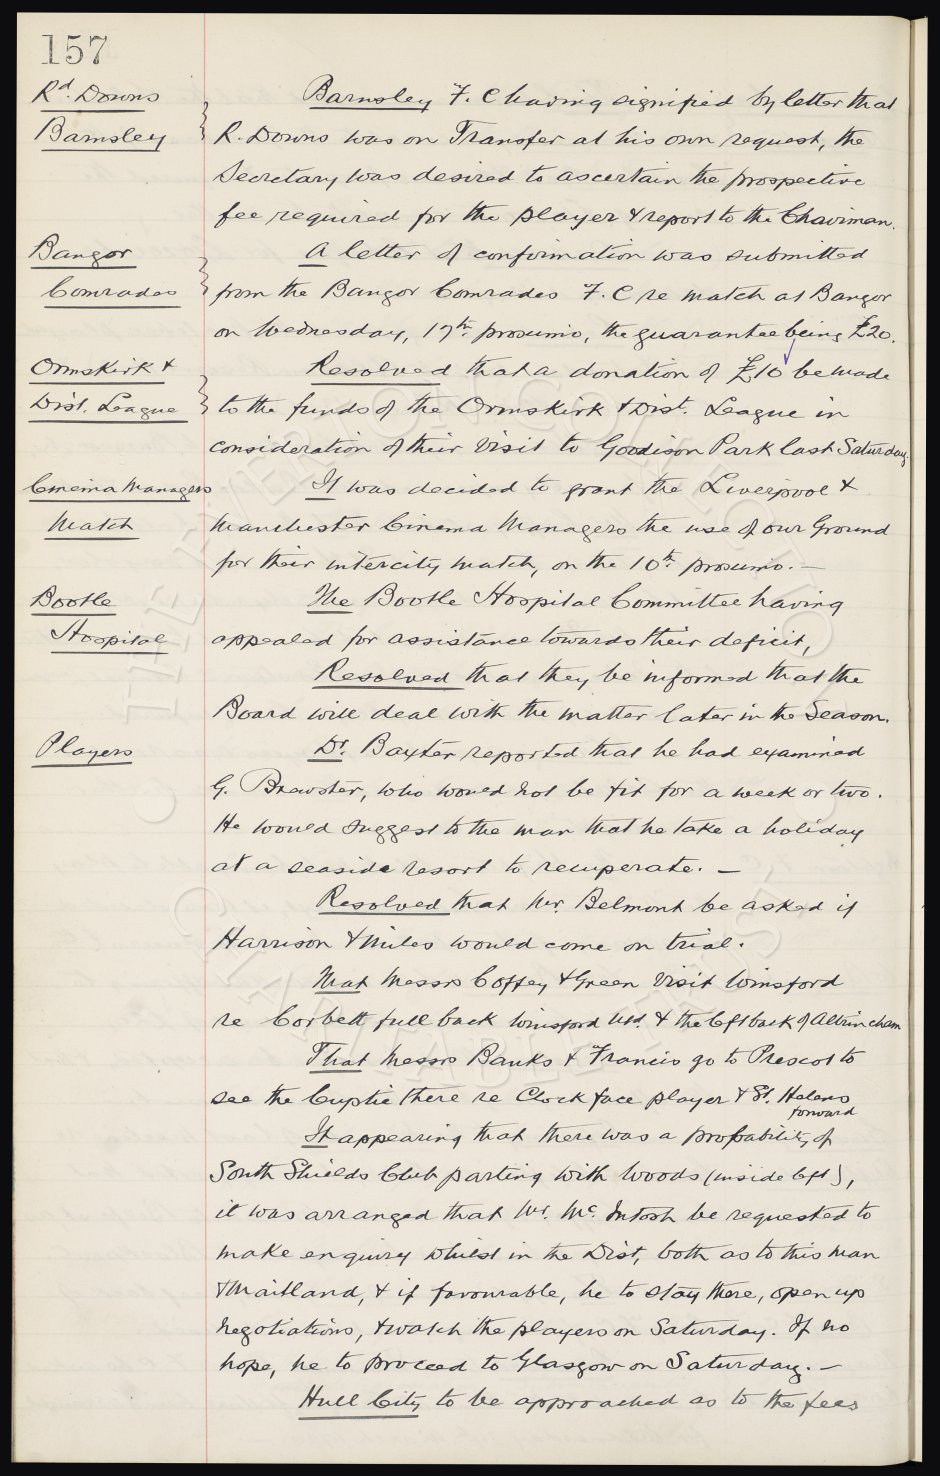 157
Rd. Downs
Barnsley
Barnsley F. C having signified by letter that
R. Downs was on Transfer at his own request, the
Secretary was desired to ascertain the prospective
fee required for the player & report to the Chairman.
Bangor
Comrades
A letter of confirmation was submitted
from the Bangor Comrades F. C re match at Bangor
on Wednesday, 17th proximo, the guarantee being £20.
Ormskirk &
Dist. League
Resolved that a donation of £10 be made
to the funds of the Ormskirk & Dist. League in
consideration of their visit to Goodison Park last Saturday.
Cinema Managers
Match
It was decided to grant the Liverpool &
Manchester Cinema Managers the use of our Ground
for their intercity match, on the 10th proximo. —
Bootle
Hospital
The Bootle Hospital Committee having
appealed for assistance towards their deficit,
Resolved that they be informed that the
Board will deal with the matter later in the Season.
Players
Dr. Baxter reported that he had examined
G. Brewster, who would not be fit for a week or two.
He would suggest to the man that he take a holiday
at a seaside resort to recuperate. —
Resolved that Mr. Belmont be asked if
Harrison & Miles would come on trial.
That Messrs Coffey & Green visit Winsford
re Corbett full back Winsford Utd. & the left back of Altrincham
That Messrs Banks & Francis go to Prescot to
see the Cuptie there re Clock face player & St. Helens
forward
It appearing that there was a probability of
South Shields Club parting with Woods (inside left),
it was arranged that Mr. McIntosh be requested to
make enquiry whilst in the Dist, both as to this man
& Maitland, & if favourable, he to stay there, open up
negotiations, & watch the players on Saturday. If no
hope, he to proceed to Glasgow on Saturday. —
Hull City to be approached as to the fees